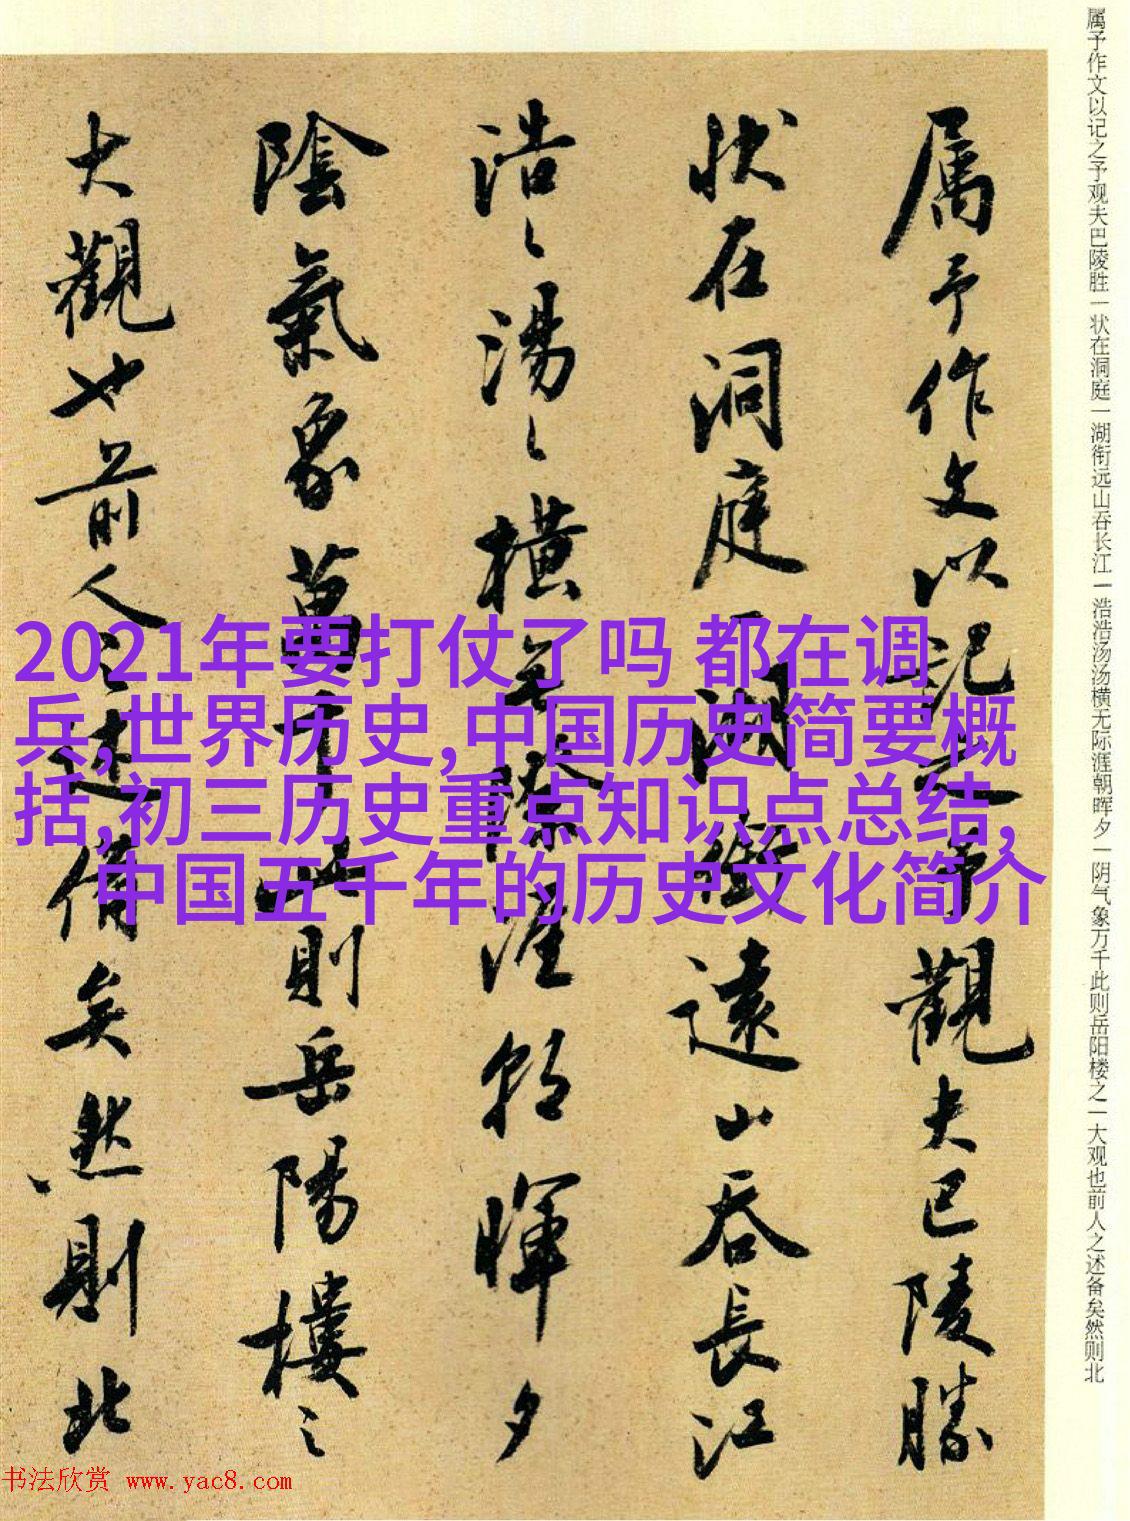 属予作文以记之予观夫巴陵胜一状在洞庭一湖衔远山吞长江一浩浩汤汤横无际涯朝晖夕一阴气象万千此则岳阳楼之一大观也前人之述备矣然则北
属予作文以記之予觀夫巴陵勝
状在洞庭一湖銜遠山吞長江
浩〻湯〻橫無際涯朝暉夕
陰氣象萬千此則岳陽樓之
大觀也前人之述備矣然則北
2021年要打仗了吗 都在调
兵,世界历史,中国历史简要概
括,初三历史重点知识点总结,
中国五千年的历史文化简介
书法欣赏 www.yac8.com